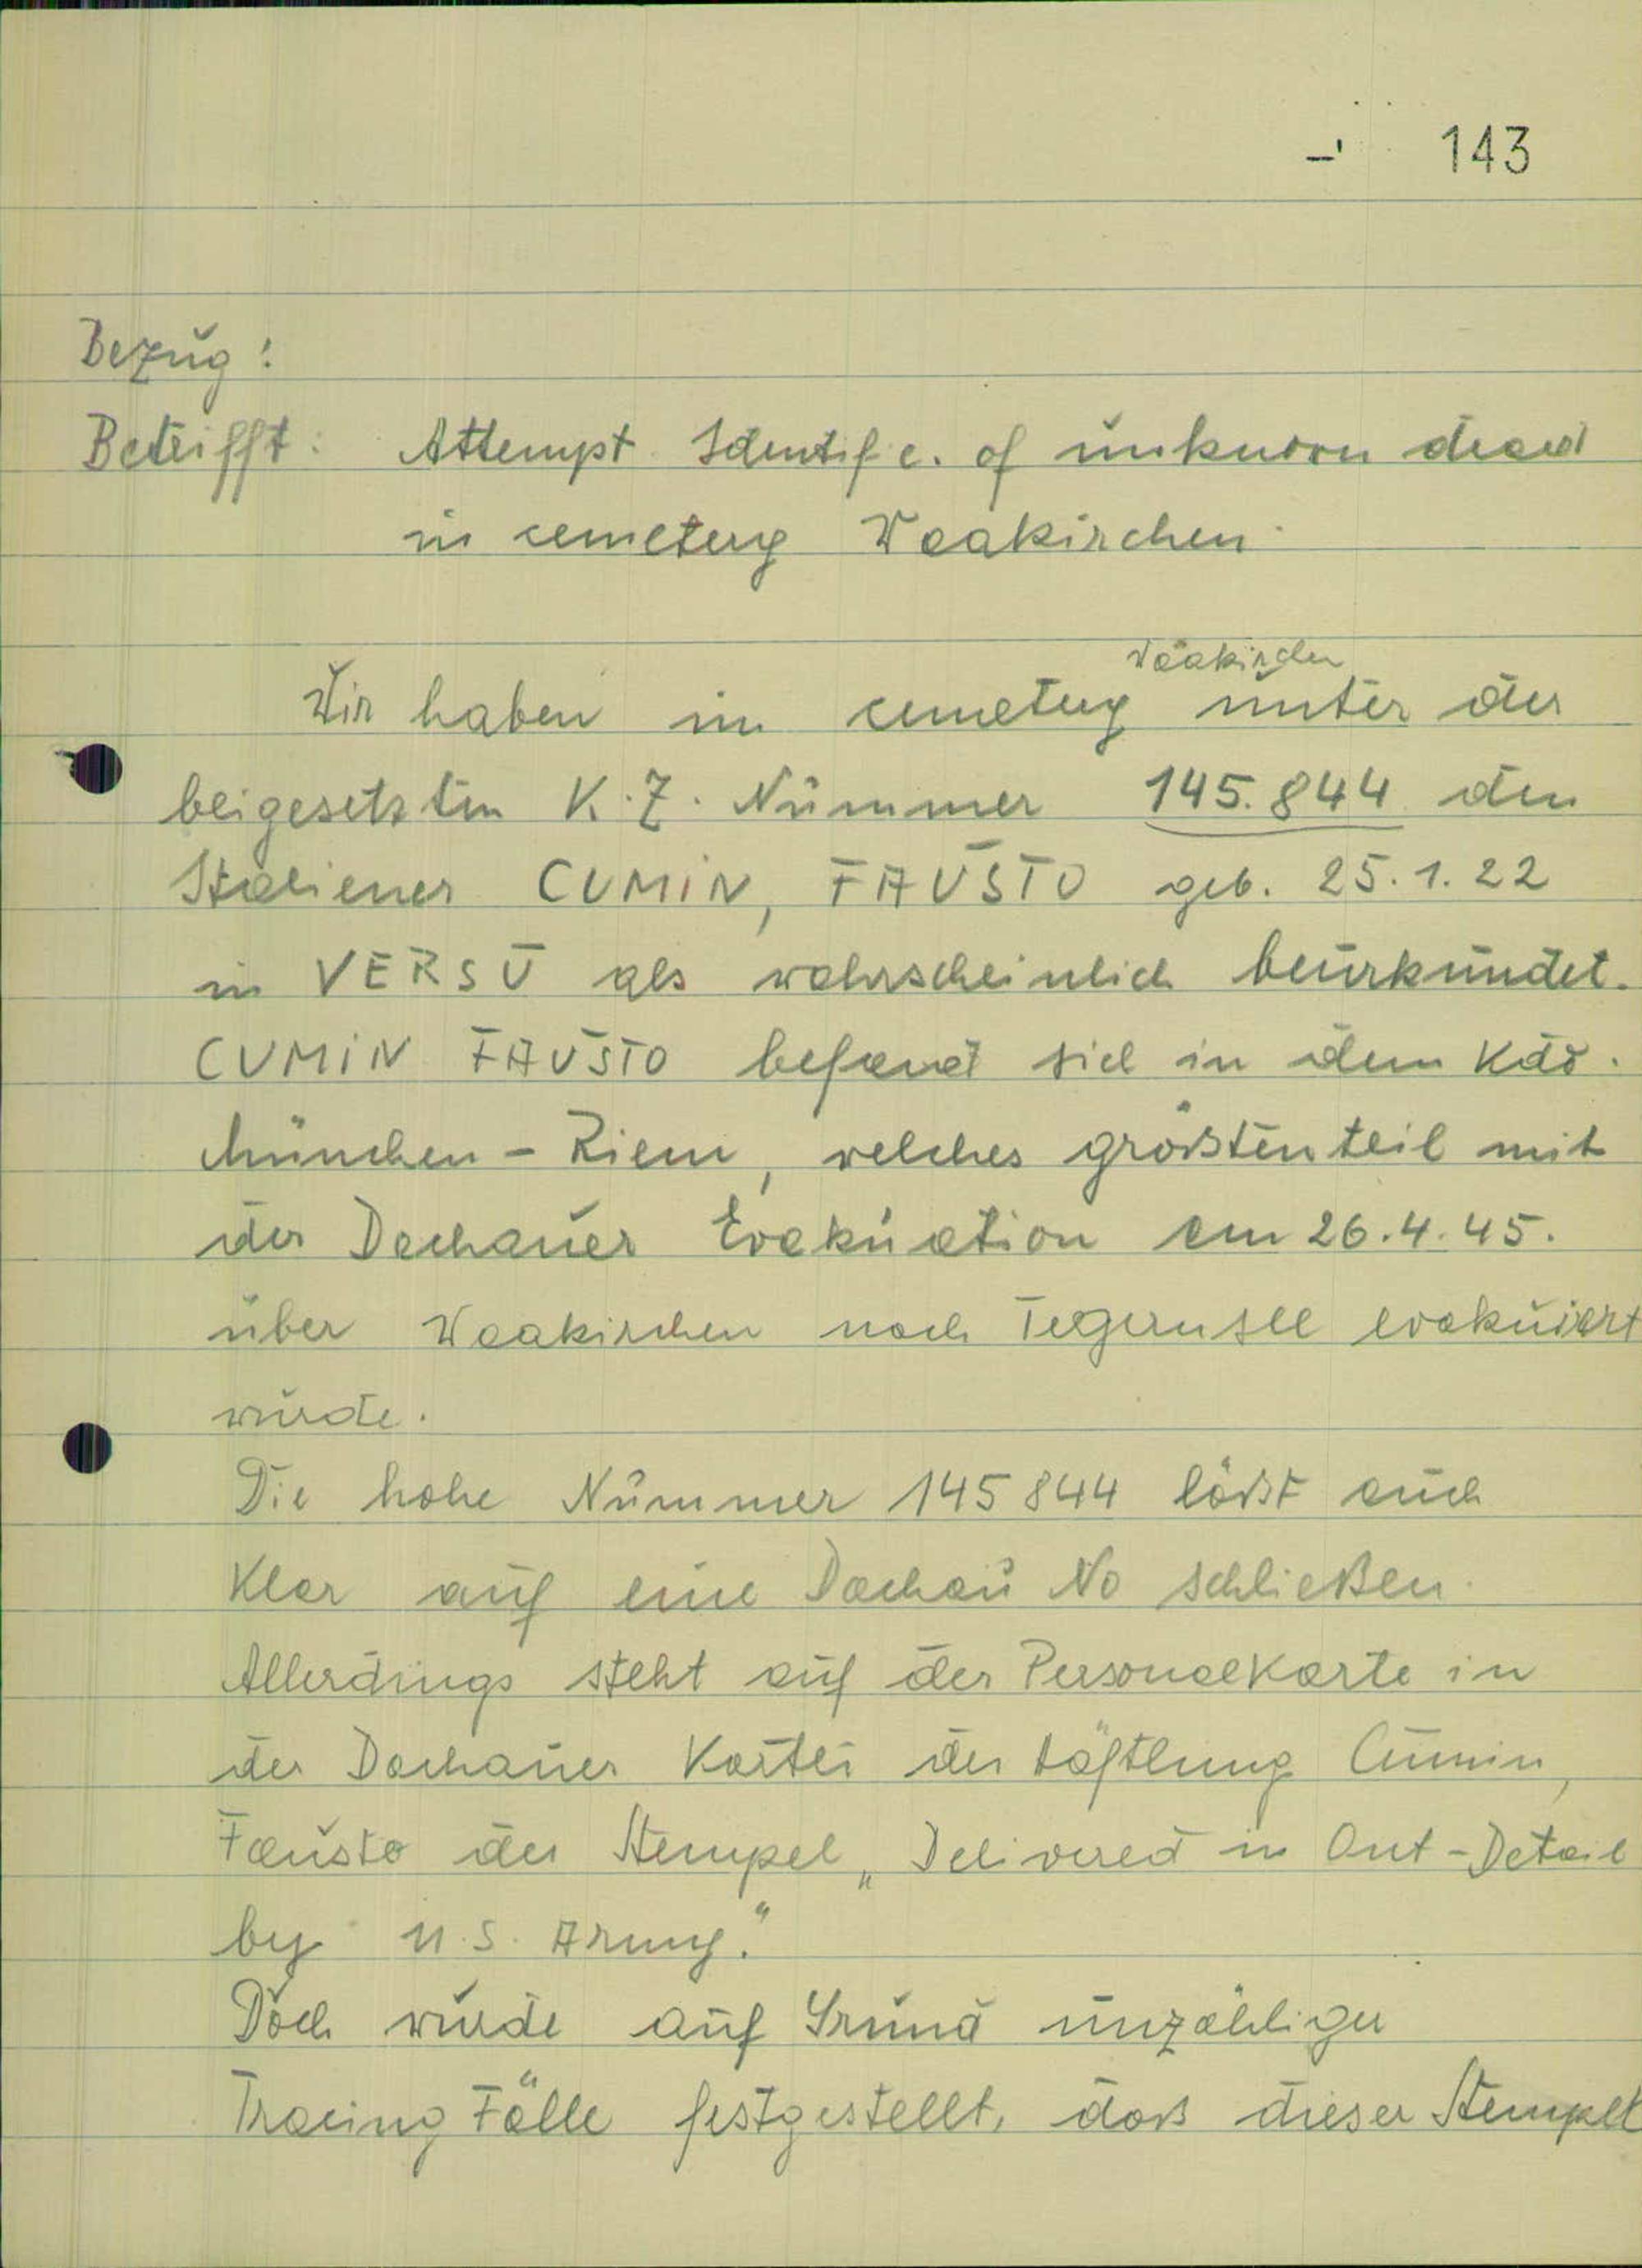 143
Bezug:
Betrifft: Attempt Identific. of unknown dead
in cemetery Waakirchen
Waakirchen
Wir haben im cemetery unter der
beigesetzten K.Z. Nummer 145.844 den
Italiener CUMIN, FAUSTO geb. 25.1.22
in VERSU als wahrscheinlich beurkundet.
CUMIN FAUSTO befand sich in dem Kdo.
München - Riem, welches größtenteil mit
der Dachauer Evakuation am 26.4.45.
über Waakirchen nach Tegernsee evakuiert
wurde.
Die hohe Nummer 145844 läßt auch
Klar auf eine Dachau No schließen.
Allerdings steht auf der Personalkarte in
der Dachauer Kartei des Häftling Cumin,
Fausto der Stempel „Delivered in Out-Detail
by U.S. Army."
Doch wurde auf Grund unzähliger
Tracing Fälle festgestellt, daß dieser Stempel